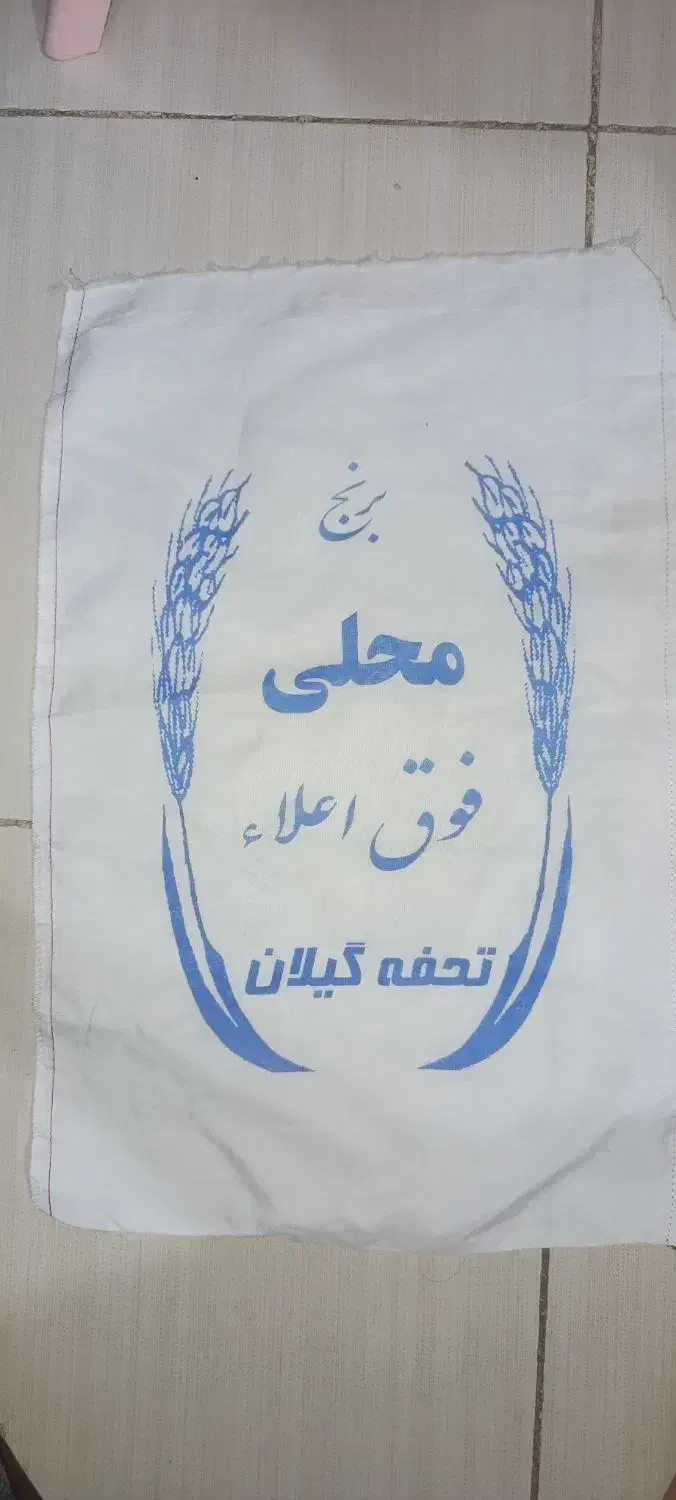 برنج
محلی
فوق اعلاء
تحفه گیلان